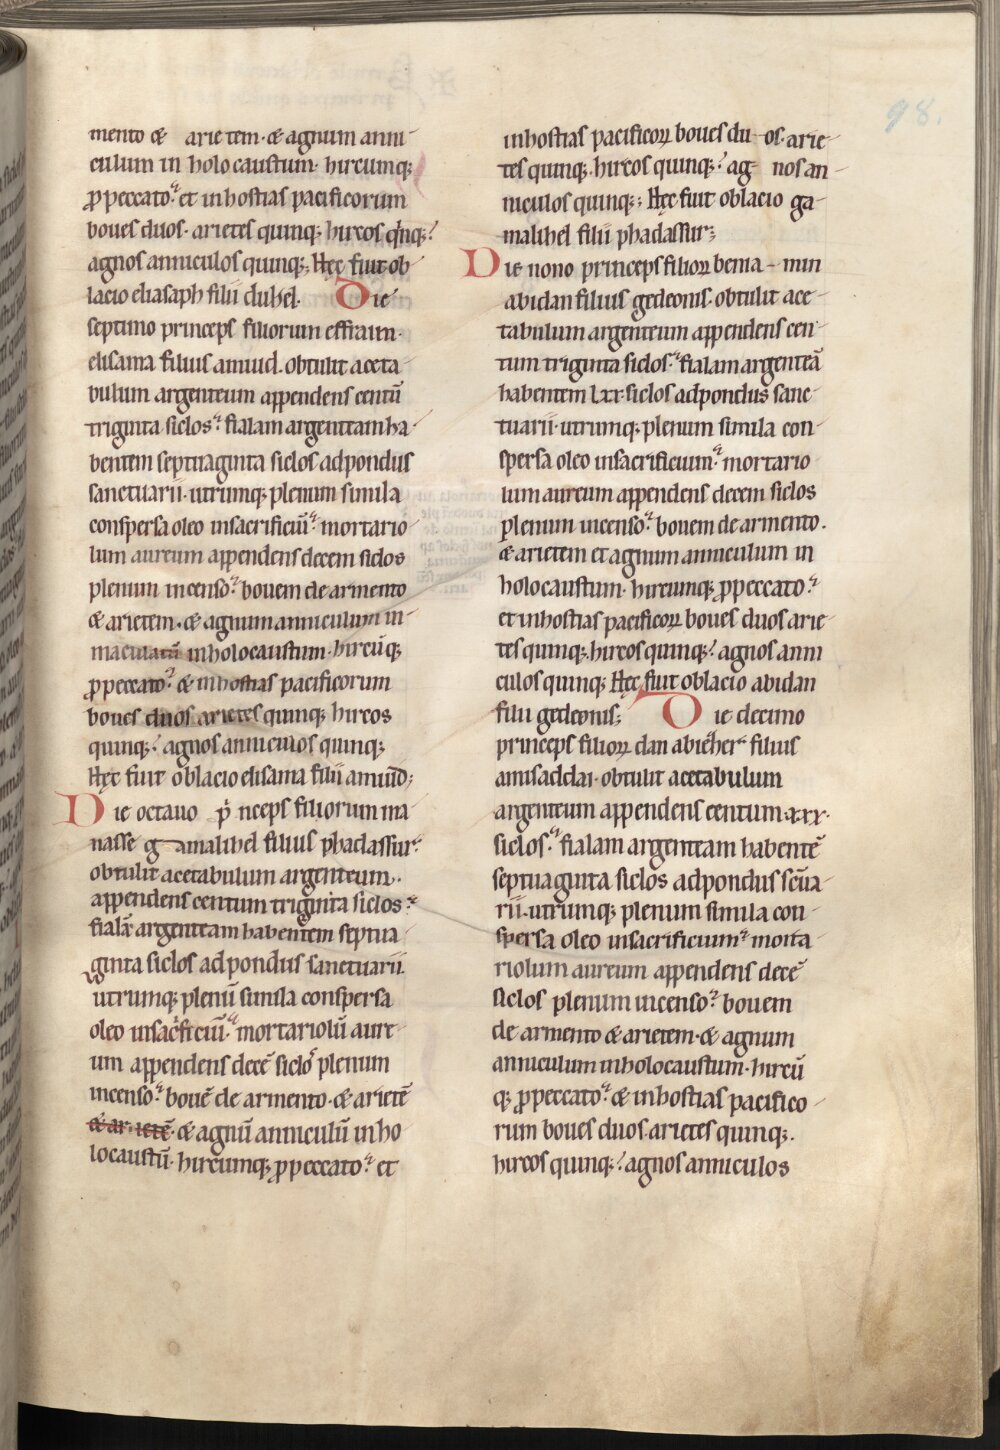 98.
mento & arietem · & agnum anni-
culum in holocaustum · hircumq;
ꝓpeccato · et inhostias pacificorum
boues duos · arietes quinq; hircos qͥnq;
agnos anniculos quinq; Hęc fuit ob-
lacio eliasaph filii duhel. Die
septimo princeps filiorum effraim ·
elisama filius amiud · obtulit aceta-
bulum argenteum appendens centū
triginta siclos · fialam argenteam ha-
bentem septuaginta siclos adpondus
sanctuarii · utrumq; plenum simila
conspersa oleo insacrificiū · mortario-
lum aureum appendens decem siclos
plenum incenso · bouem de armento
& arietem · & agnum anniculum in-
maculatū inholocaustum · hircūq;
ꝓpeccato · & inhostias pacificorum
boues duos arietes quinq; hircos
quinq; agnos anniculos quinq;
Hęc fuit oblacio elisama filii amiud;
Die octauo pͥnceps filiorum ma-
nasse gamalihel filius phadassur ·
obtulit acetabulum argenteum ·
appendens centum triginta siclos ·
fialā argenteam habentem septua-
ginta siclos adpondus sanctuarii.
utrumq; plenū simila conspersa
oleo insacͥficiū · mortariolū aure-
um appendens decē siclos plenum
incenso · bouē de armento · & arietē
& arietē · & agnū anniculū inho-
locaustū · hircumq; ꝓpeccato · et
inhostias pacificoꝝ boues duos · arie-
tes quinq; · hircos quinq; agnos an-
niculos quinq; Hęc fuit oblacio ga-
malihel filii phadassur;
Die nono princeps filioꝝ beniamin
abidan filius gedeonis · obtulit ace-
tabulum argenteum appendens cen-
tum triginta siclos · fialam argenteā
habentem lxx · siclos adpondus sanc-
tuarii · utrumq; plenum simila con-
spersa oleo insacrificium · mortario-
lum aureum appendens decem siclos
plenum incenso · bouem de armento ·
& arietem et agnum anniculum in
holocaustum · hircumq; ꝓpeccato ·
et inhostias pacificoꝝ boues duos arie-
tes quinq; · hircos quinq; agnos anni-
culos quinq; Hęc fuit oblacio abidan
filii gedeonis; Die decimo
princeps filioꝝ dan abiecher filius
amisaddai · obtulit acetabulum
argenteum appendens centum · xxx ·
siclos · fialam argenteam habentē
septuaginta siclos adpondus scūa-
rii · utrumq; plenum simila con-
spersa oleo insacrificium · morta-
riolum aureum appendens decē
siclos plenum incenso · bouem
de armento & arietem · & agnum
anniculum inholocaustum · hircū-
q; ꝓpeccato · & inhostias pacifico-
rum boues duos · arietes quinq; ·
hircos quinq; agnos anniculos